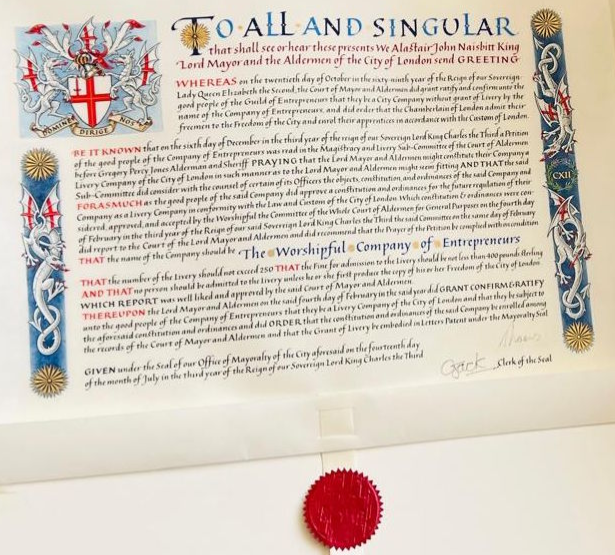 TO ALL AND SINGULAR
that shall see or hear these presents We Alastair John Naisbitt King
Lord Mayor and the Aldermen of the City of London send GREETING
WHEREAS on the twentieth day of October in the sixty-ninth year of the Reign of our Sovereign
Lady Queen Elizabeth the Second, the Court of Mayor and Aldermen did grant ratify and confirm unto the
good people of the Guild of Entrepreneurs that they be a City Company without grant of Livery by the
name of the Company of Entrepreneurs, and did order that the Chamberlain of London admit their
freemen to the Freedom of the City and enrol their apprentices in accordance with the Custom of London.
DOMINE DIRIGE NOS
BE IT KNOWN that on the sixth day of December in the third year of the reign of our Sovereign Lord King Charles the Third a Petition
of the good people of the Company of Entrepreneurs was read in the Magistracy and Livery Sub-Committee of the Court of Aldermen
before Gregory Percy Jones Alderman and Sheriff PRAYING that the Lord Mayor and Aldermen might constitute their Company a
Livery Company of the City of London in such manner as to the Lord Mayor and Aldermen might seem fitting AND THAT the said
Sub-Committee did consider with the counsel of certain of its Officers the objects, constitution, and ordinances of the said Company and
FORASMUCH as the good people of the said Company did approve a constitution and ordinances for the future regulation of their
Company as a Livery Company in conformity with the Law and Custom of the City of London Which constitution & ordinances were con-
sidered, approved, and accepted by the Worshipful the Committee of the Whole Court of Aldermen for General Purposes on the fourth day
of February in the third year of the Reign of our said Sovereign Lord King Charles the Third the said Committee on the same day of February
did report to the Court of the Lord Mayor and Aldermen and did recommend that the Prayer of the Petition be complied with on condition
THAT the name of the Company should be The Worshipful Company of Entrepreneurs
THAT the number of the Livery should not exceed 250 THAT the Fine for admission to the Livery should be not less than 400 pounds Sterling
AND THAT no person should be admitted to the Livery unless he or she first produce the copy of his or her Freedom of the City of London
WHICH REPORT was well liked and approved by the said Court of Mayor and Aldermen.
THEREUPON the Lord Mayor and Aldermen on the said fourth day of February in the said year did GRANT CONFIRM & RATIFY
unto the good people of the Company of Entrepreneurs that they be a Livery Company of the City of London and that they be subject to
the aforesaid constitution and ordinances and did ORDER that the constitution and ordinances of the said Company be enrolled among
the records of the Court of Mayor and Aldermen and that the Grant of Livery be embodied in Letters Patent under the Mayoralty Seal
GIVEN under the Seal of our Office of Mayoralty of the City aforesaid on the fourteenth day
of the month of July in the third year of the Reign of our Sovereign Lord King Charles the Third
Clerk of the Seal
CXII